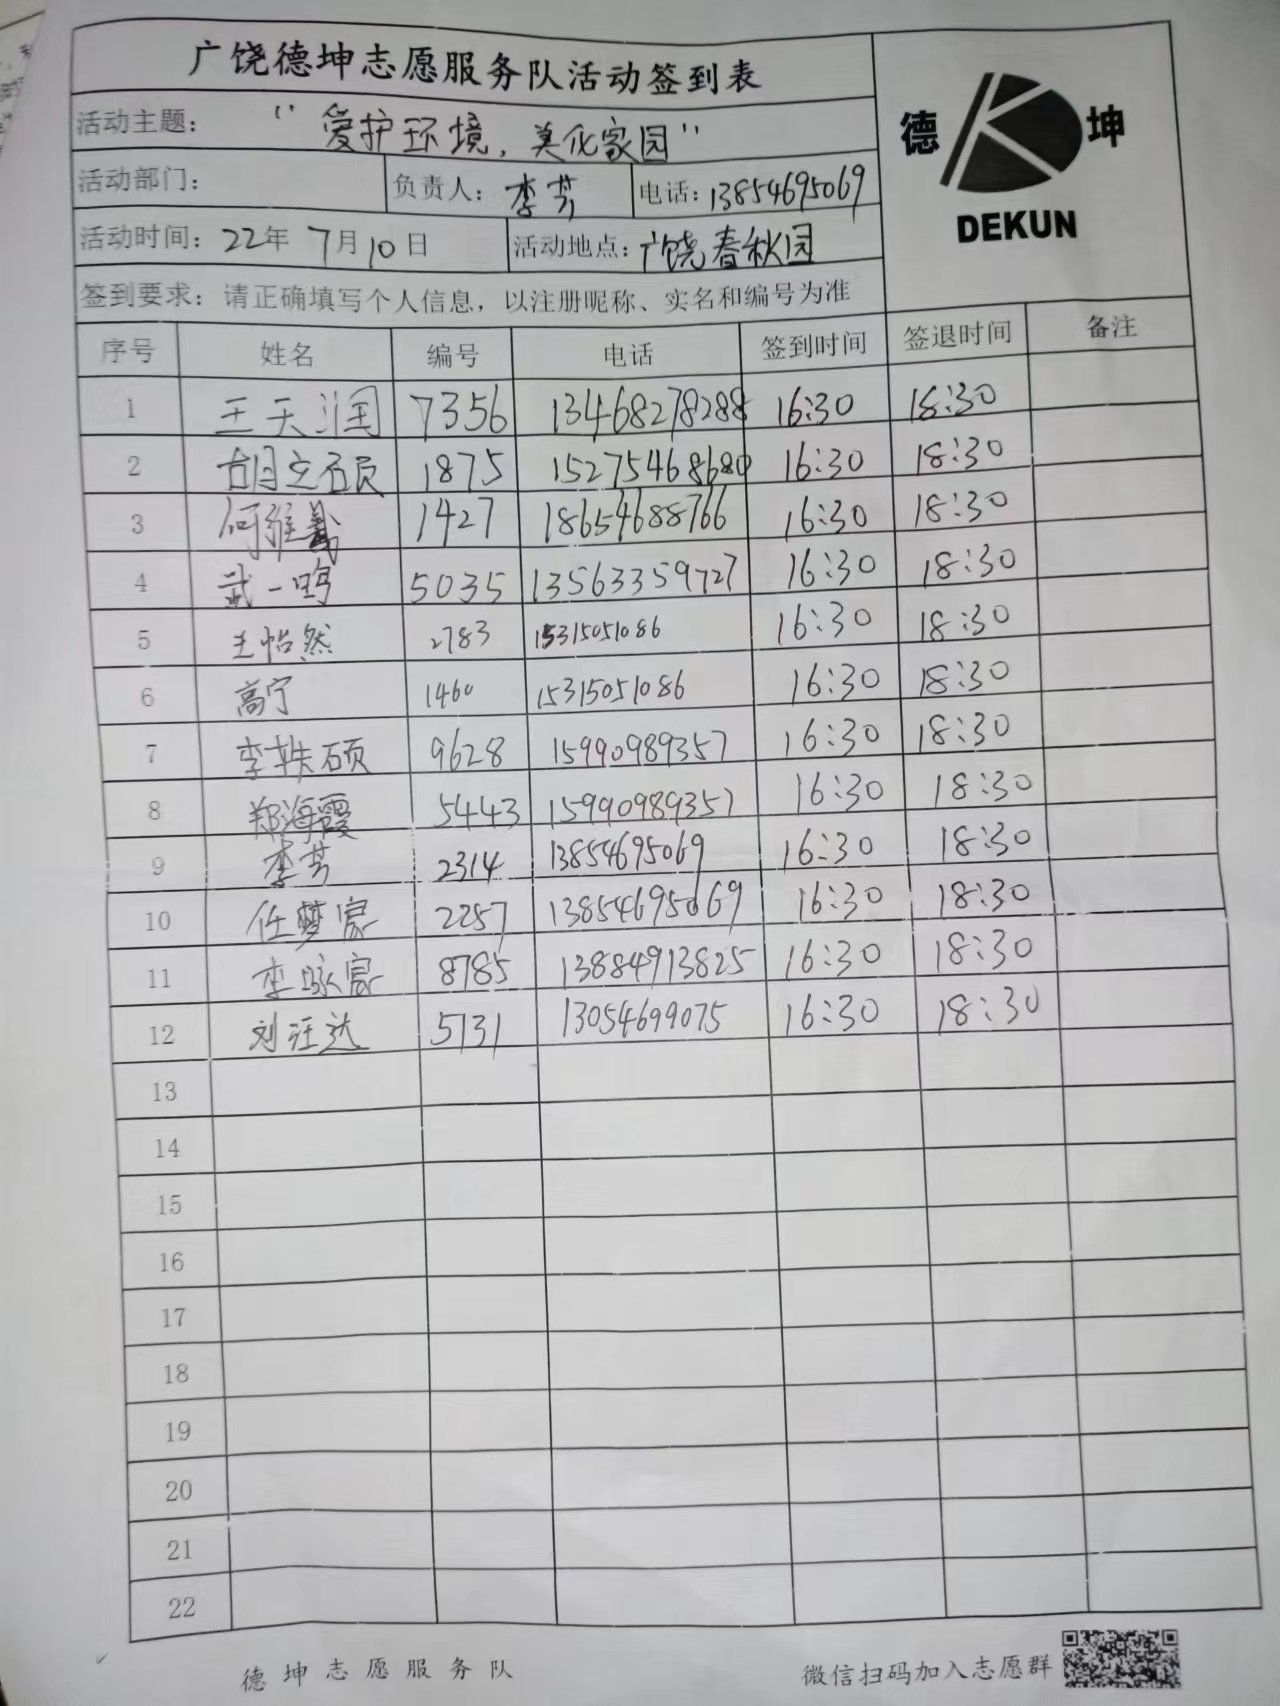 广饶德坤志愿服务队活动签到表
德 坤
DEKUN
活动主题： “爱护环境，美化家园”
活动部门： 负责人：李芳 电话：13854695069
活动时间：22年 7月10日 活动地点：广饶春秋园
签到要求：请正确填写个人信息，以注册昵称、实名和编号为准
序号 姓名 编号 电话 签到时间 签退时间 备注
1 王天润 7356 13468278288 16:30 18:30
2 1875 15275468680 16:30 18:30
3 1427 18654688766 16:30 18:30
4 武一鸣 5035 13563359727 16:30 18:30
5 王怡然 2783 15315051086 16:30 18:30
6 高宁 1460 15315051086 16:30 18:30
7 李轶硕 9628 15990989357 16:30 18:30
8 郑海霞 5443 15990989357 16:30 18:30
9 李芳 2314 13854695069 16:30 18:30
10 任梦宸 2257 13854695069 16:30 18:30
11 李咏宸 8785 13884913825 16:30 18:30
12 刘汪达 5731 13054699075 16:30 18:30
13
14
15
16
17
18
19
20
21
22
德坤志愿服务队 微信扫码加入志愿群